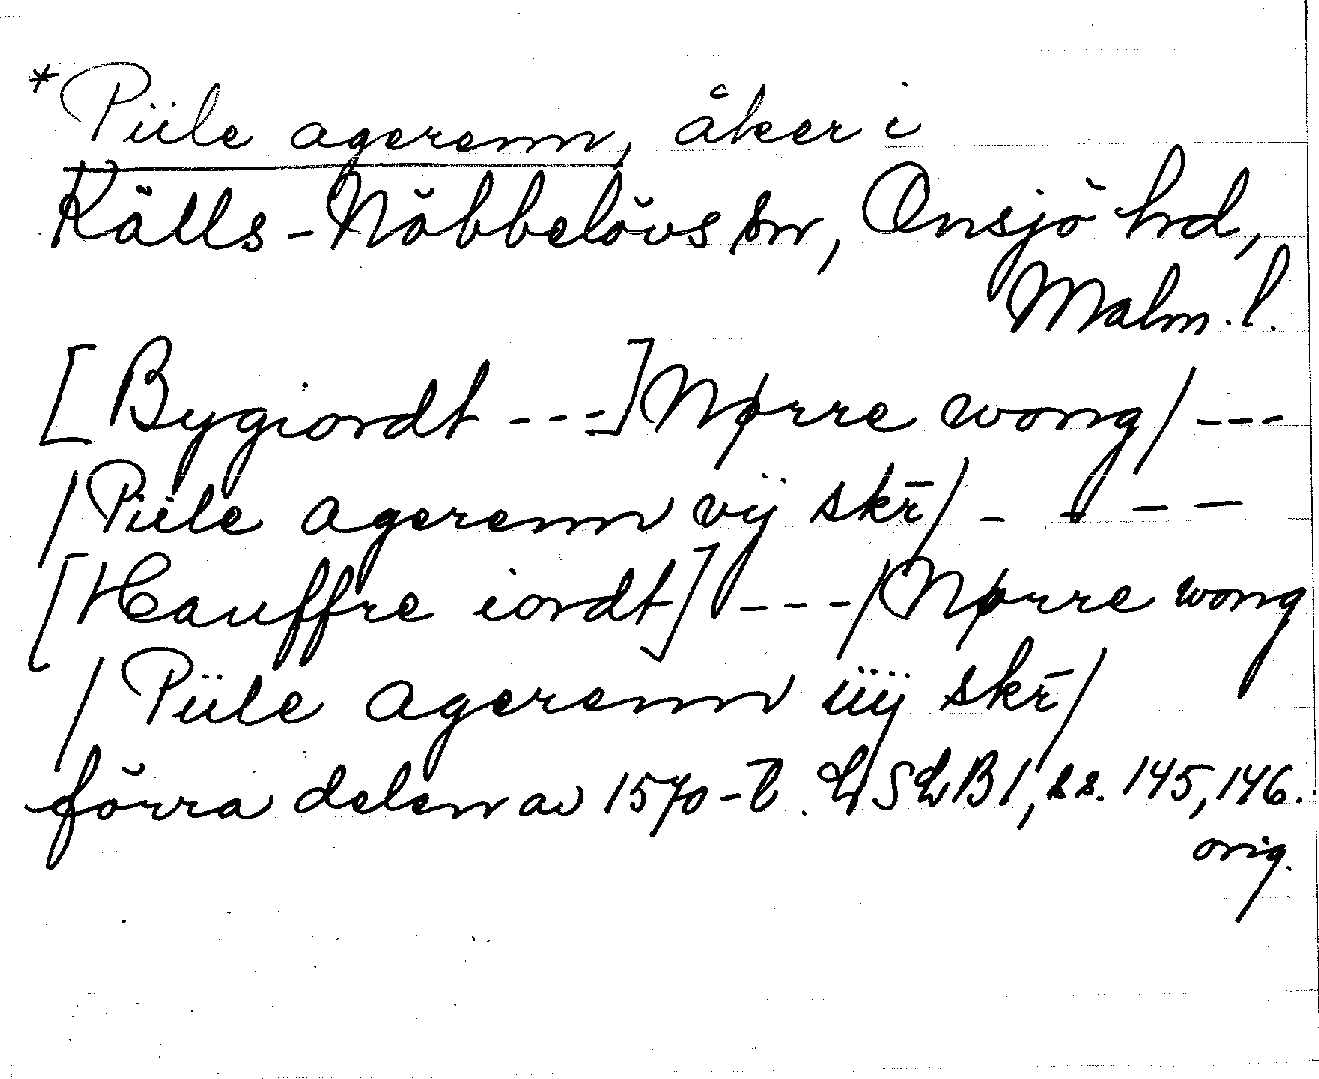 *Piile agerenn, åker i
Källs-Nöbbelövs sn, Onsjö hd,
Malm. l.
[Bygiordt ---] Nørre wong/ ---
/Piile agerenn vij skr̄/ - - - -
[Hauffre iordt] ---/Nørre wong
/Piile agerenn iiij skr̄/
förra delen av 1570-t. LSLB1, ss. 145, 146.
orig.